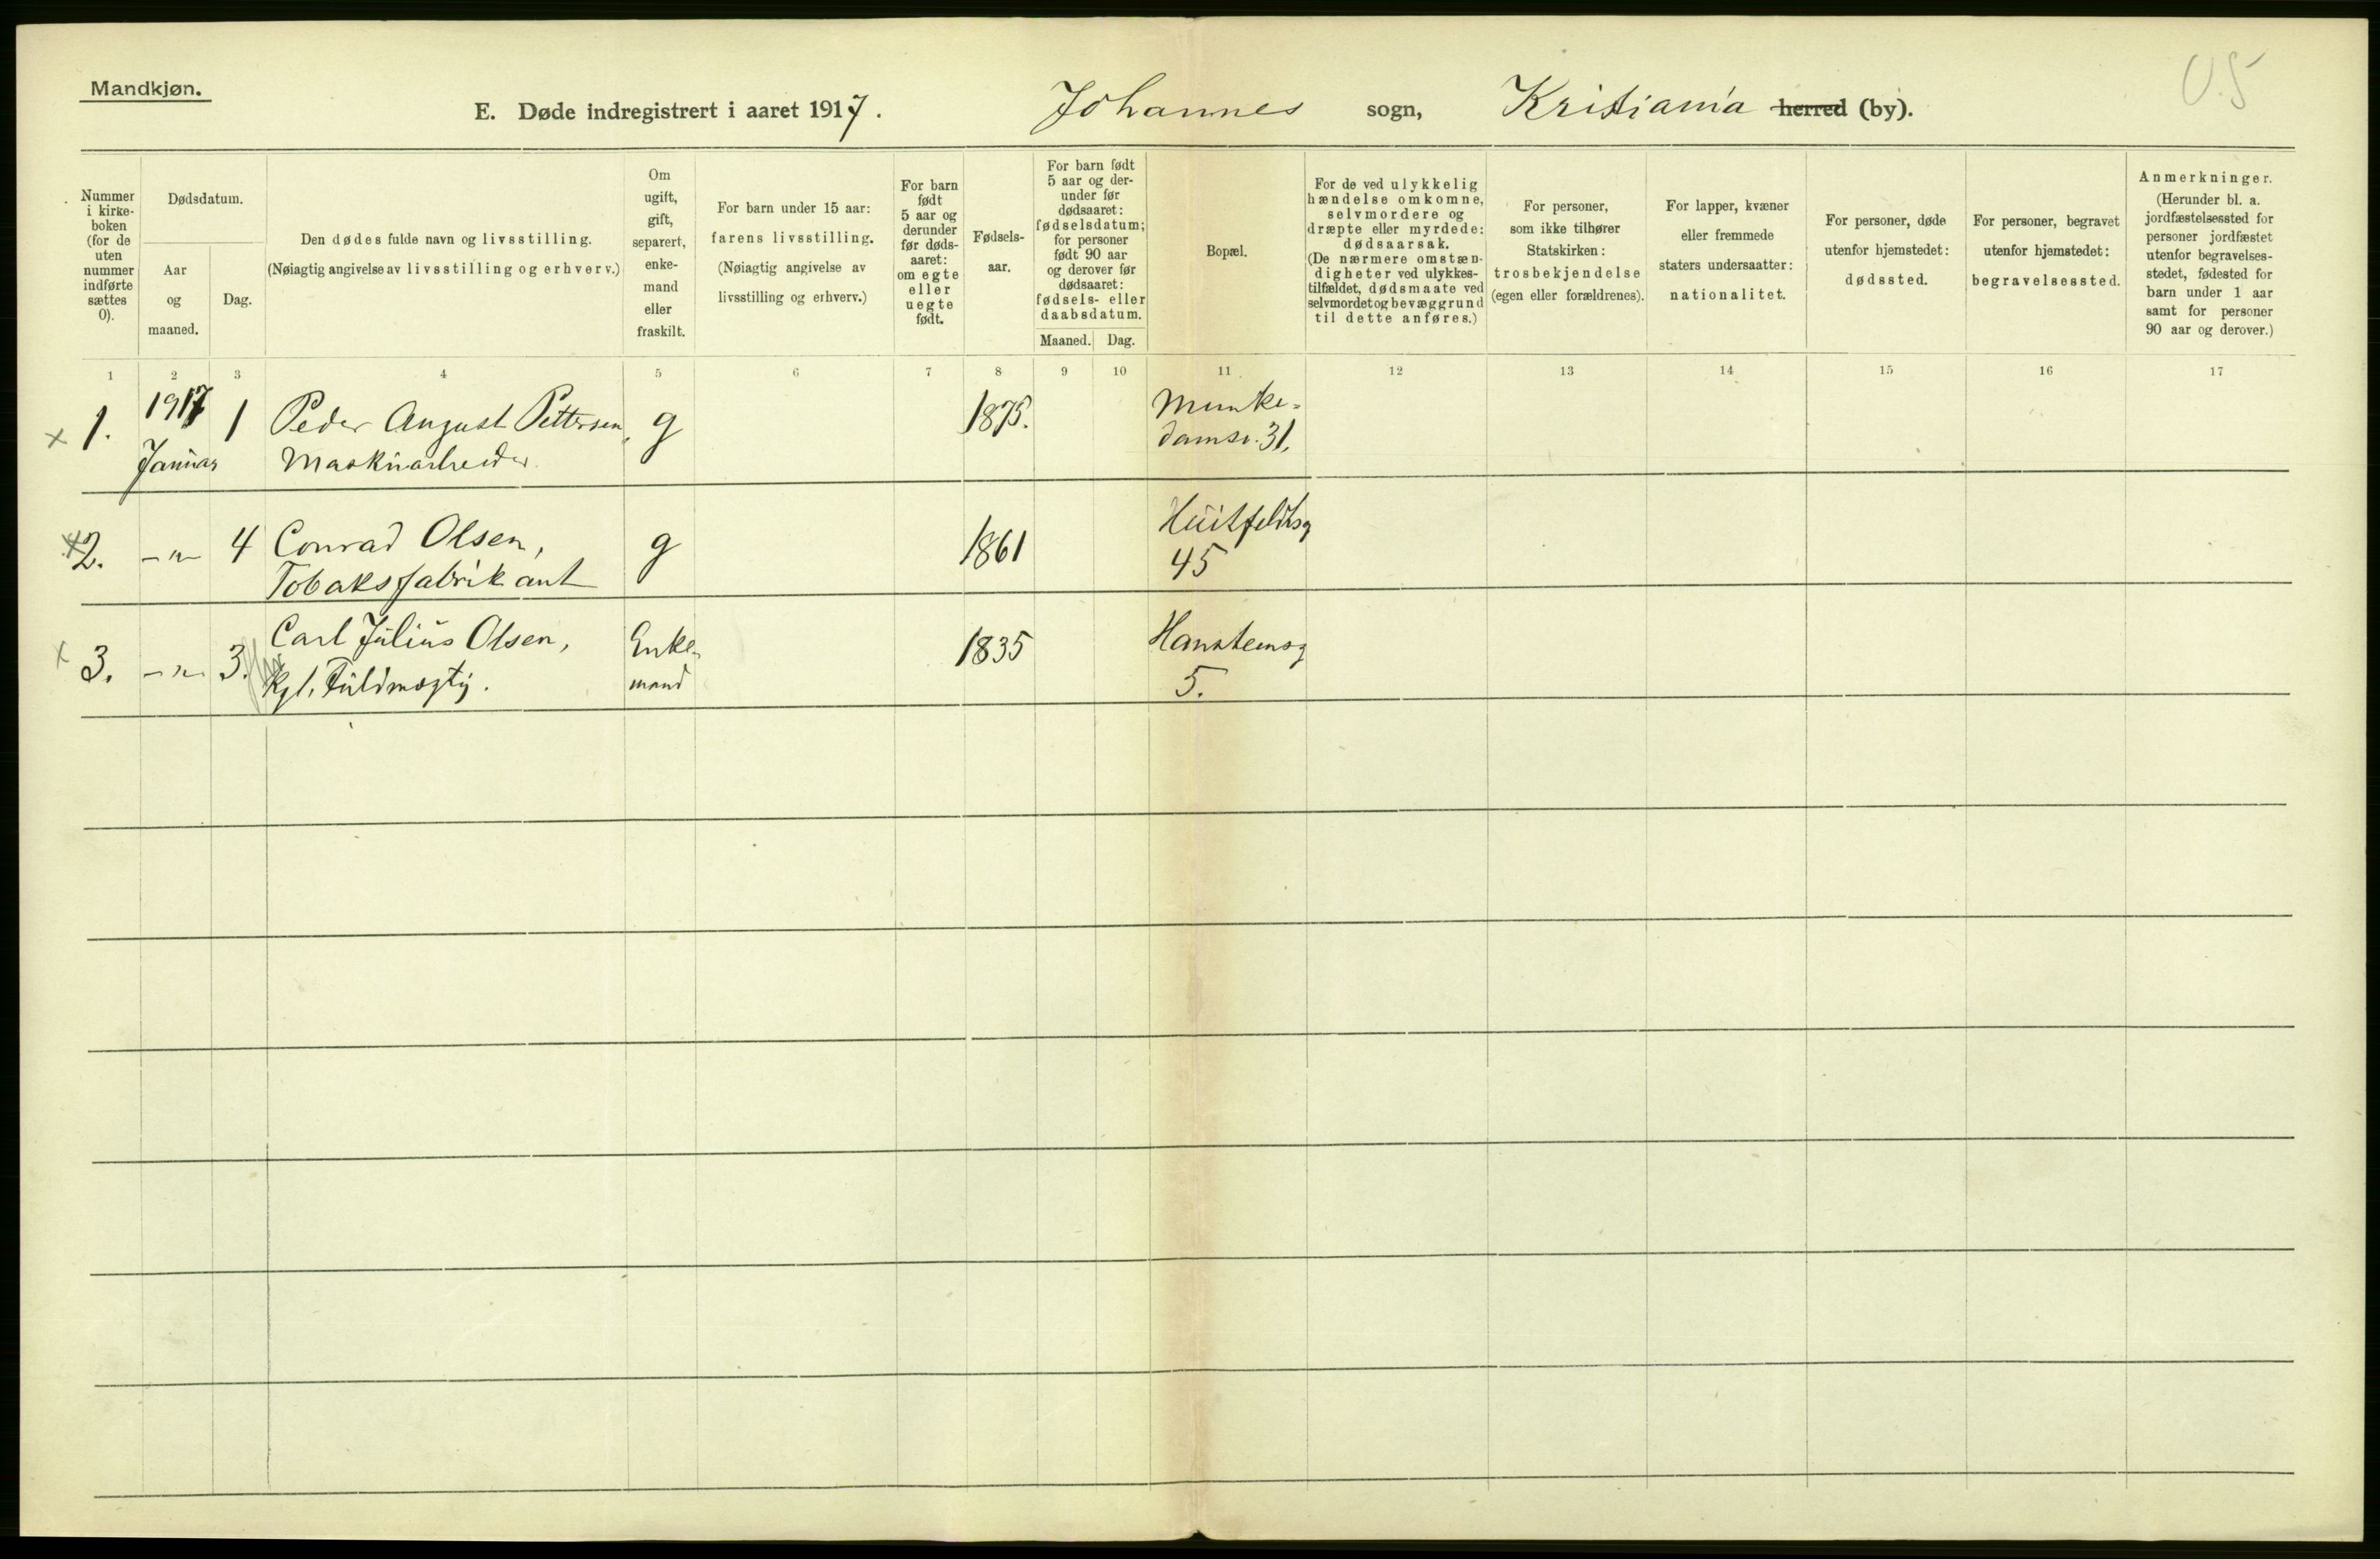 Mandkjøn.
E. Døde indregistrert i aaret 1917. Johannes sogn, Kristiania herred (by).
Nummer i kirke-boken (for de uten nummer indførte sættes 0).
Dødsdatum.
Aar og maaned.
Dag.
Den dødes fulde navn og livsstilling.
(Nøiagtig angivelse av livsstilling og erhverv.)
Om ugift, gift, separert, enke-mand eller fraskilt.
For barn under 15 aar:
farens livsstilling.
(Nøiagtig angivelse av livsstilling og erhverv.)
For barn født 5 aar og derunder før døds-aaret: om egte eller uegte født.
Fødsels-aar.
For barn født 5 aar og der-under før dødsaaret: fødselsdatum; for personer født 90 aar og derover før dødsaaret: fødsels- eller daabsdatum.
Maaned. Dag.
Bopæl.
For de ved ulykkelig hændelse omkomne, selvmordere og dræpte eller myrdede: dødsaarsak.
(De nærmere omstæn-digheter ved ulykkes-tilfældet, dødsmaate ved selvmordet og bevæggrund til dette anføres.)
For personer, som ikke tilhører Statskirken: trosbekjendelse (egen eller forældrenes).
For lapper, kvæner eller fremmede staters undersaatter: nationalitet.
For personer, døde utenfor hjemstedet: dødssted.
For personer, begravet utenfor hjemstedet: begravelsessted.
Anmerkninger.
(Herunder bl. a. jordfæstelsessted for personer jordfæstet utenfor begravelses-stedet, fødested for barn under 1 aar samt for personer 90 aar og derover.)
1 2 3 4 5 6 7 8 9 10 11 12 13 14 15 16 17
x 1. 1917 1 Peder August Pettersen, g 1875. Munke-
Januar Maskinarbeider. damsv. 31.
x 2. -"- 4 Conrad Olsen, g 1861 Huitfeldtsg
Tobaksfabrikant 45
x 3. -"- 3. Carl Julius Olsen, Enke- 1835 Hansteensg
Kgl. Fuldmægtig. mand 5.